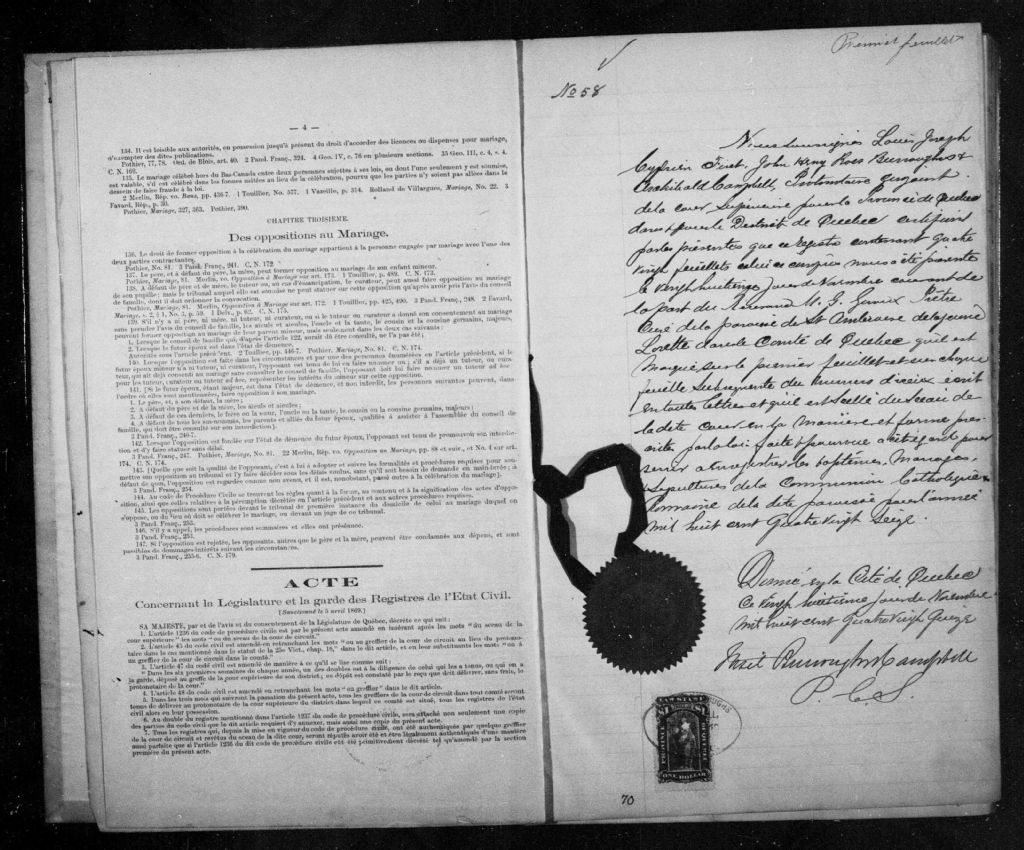 — 4 —
134. Il est loisible aux autorités, en possession jusqu'à présent du droit d'accorder des licences ou dispenses pour mariage,
d'exempter des dites publications.
Pothier, 77, 78. Ord. de Blois, art. 40. 2 Pand. Franç., 324. 4 Geo. IV, c. 76 en plusieurs sections. 35 Geo. III, c. 4, s. 4.
C. N. 169.
135. Le mariage célébré hors du Bas-Canada entre deux personnes sujettes à ses lois, ou dont l'une seulement y est soumise,
est valable, s'il est célébré dans les formes usitées au lieu de la célébration, pourvu que les parties n'y soient pas allées dans le
dessein de faire fraude à la loi.
2 Merlin, Rép. vo. Bans, pp. 436-7. 1 Touillier, No. 577. 1 Vazeille, p. 314. Rolland de Villargues, Mariage, No. 22. 3
Favard, Rép., p. 30.
Pothier, Mariage, 327, 363. Pothier, 390.
CHAPITRE TROISIEME.
Des oppositions au Mariage.
136. Le droit de former opposition à la célébration du mariage appartient à la personne engagée par mariage avec l'une des
deux parties contractantes.
Pothier, No. 81. 3 Pand. Franç., 241. C. N. 172.
137. Le père, et à défaut du père, la mère, peut former opposition au mariage de son enfant mineur.
Pothier, Mariage, 81. Merlin, vo. Opposition à Mariage sur art. 173. 1 Touillier, p. 489. C. N. 173.
138. A défaut de père et de mère, le tuteur ou, au cas d'émancipation, le curateur, peut aussi faire opposition au mariage
de son pupille; mais le tribunal auquel elle est soumise ne peut statuer sur cette opposition qu'après avoir pris l'avis du conseil
de famille, dont il doit ordonner la convocation.
Pothier, Mariage, 81. Merlin, Opposition à Mariage sur art. 172. 1 Touillier, pp. 425, 490. 3 Pand. Franç., 248. 2 Favard,
Mariage, s. 2, § 1, No. 3, p. 59. 1 Delv., p. 62. C. N. 175.
139. S'il n'y a ni père, ni mère, ni tuteur, ni curateur, ou si le tuteur ou curateur a donné son consentement au mariage
sans prendre l'avis du conseil de famille, les aïeuls et aïeules, l'oncle et la tante, le cousin et la cousine germains, majeurs,
peuvent former opposition au mariage de leur parent mineur, mais seulement dans les deux cas suivants:
1. Lorsque le conseil de famille qui, d'après l'article 122, aurait dû être consulté, ne l'a pas été;
2. Lorsque le futur époux est dans l'état de démence.
Autorités sous l'article précédent. 2 Touillier, pp. 446-7. Pothier, Mariage, No. 81. C. N. 174.
140. Lorsque l'opposition est faite dans les circonstances et par une des personnes énumérées en l'article précédent, si le
futur époux mineur n'a ni tuteur, ni curateur, l'opposant est tenu de lui en faire nommer un; s'il a déjà un tuteur, ou curateur,
qui ait déjà consenti au mariage sans consulter le conseil de famille, l'opposant doit lui faire nommer un tuteur ad hoc,
pour les tuteur, curateur ou tuteur ad hoc, représenter les intérêts du mineur sur cette opposition.
141. [Si le futur époux, étant majeur, est dans l'état de démence, et non interdit, les personnes suivantes peuvent, dans
l'ordre où elles sont mentionnées, faire opposition à son mariage.
1. Le père, et, à son défaut, la mère;
2. A défaut du père et de la mère, les aïeuls et aïeules;
3. A défaut de ces derniers, le frère ou la sœur, l'oncle ou la tante, le cousin ou la cousine germains, majeurs;
4. A défaut de tous les sus-nommés, les parents et alliés du futur époux, qualifiés à assister à l'assemblée du conseil de
famille, qui doit être consulté sur son interdiction].
3 Pand. Franç., 246-7.
142. Lorsque l'opposition est fondée sur l'état de démence du futur époux, l'opposant est tenu de promouvoir son interdiction
et d'y faire statuer sans délai.
3 Pand. Franç., 247. Pothier, Mariage, No. 81. 22 Merlin, Rép. vo. Opposition au Mariage, pp. 88 et suiv., et No. 4 sur art.
174. C. N. 174.
143. [Quelle que soit la qualité de l'opposant, c'est à lui à adopter et suivre les formalités et procédures requises pour soumettre
son opposition au tribunal et l'y faire décider sous les délais voulus, sans qu'il soit besoin de demande en main-levée; à
défaut de quoi, l'opposition est regardée comme non avenue, et il est, nonobstant, passé outre à la célébration du mariage].
3 Pand. Franç., 254.
144. Au code de Procédure Civile se trouvent les règles quant à la forme, au contenu et à la signification des actes d'opposition,
ainsi que celles relatives à la péremption décrétée en l'article précédent et aux autres procédures requises.
145. Les oppositions sont portées devant le tribunal de première instance du domicile de celui au mariage duquel on
s'oppose, ou du lieu où doit se célébrer le mariage, ou devant un juge de ce tribunal.
3 Pand. Franç., 253.
146. S'il y a appel, les procédures sont sommaires et elles ont préséance.
3 Pand. Franç., 253.
147. Si l'opposition est rejetée, les opposants, autres que le père et la mère, peuvent être condamnés aux dépens, et sont
passibles de dommages-intérêts suivant les circonstances.
3 Pand. Franç., 255-6. C. N. 179.
ACTE
Concernant la Législature et la garde des Registres de l'Etat Civil.
[Sanctionné le 5 avril 1869.]
SA MAJESTE, par et de l'avis et du consentement de la Législature de Québec, décrète ce qui suit:
1. L'article 1236 du code de procédure civile est par le présent acte amendé en insérant après les mots "du sceau de la
cour supérieure" les mots "ou du sceau de la cour de circuit."
2. L'article 45 du code civil est amendé en retranchant les mots "ou au greffier de la cour de circuit au lieu du protonotaire
dans le cas mentionné dans le statut de la 25e Vict., chap. 16," dans le dit article, et en leur substituant les mots "ou à
un greffier de la cour de circuit dans le comté."
3. L'article 47 du code civil est amendé de manière à ce qu'il se lise comme suit:
"Dans les six premières semaines de chaque année, un des doubles est à la diligence de celui qui les a tenus, ou qui en a
la garde, déposé au greffe de la cour supérieure de son district; ce dépôt est constaté par le reçu que doit délivrer, sans frais, le
protonotaire de la cour."
4. L'article 48 du code civil est amendé en retranchant les mots "ou greffier" dans le dit article.
5. Dans les trois mois qui suivront la passation du présent acte, tous les greffiers de la cour de circuit dans tout comté seront
tenus de délivrer au protonotaire de la cour supérieure du district dans lequel ce comté est situé, tous les registres de l'état
civil alors en leur possession.
6. Au double du registre mentionné dans l'article 1237 du code de procédure civile, sera attaché non seulement une copie
des parties du code civil que le dit article requiert d'y annexer, mais aussi une copie du présent acte.
7. Tous les registres qui, depuis la mise en vigueur du code de procédure civile, ont été authentiqués par quelque greffier
de la cour de circuit et revêtus du sceau de la dite cour, seront réputés avoir été et être légalement authentiqués d'une manière
aussi parfaite que si l'article 1236 du dit code de procédure civile eût été primitivement décrété tel qu'amendé par la section
première du présent acte.
Premier feuillet
No 58
Nous soussignés Louis Joseph
Cyprien Fiset, John King Ross Burroughs &
Archibald Campbell, Protonotaire conjoint
de la cour Supérieure pour la Province de Québec
dans & pour le District de Québec certifions
par les présentes que ce registre contenant quatre
vingt feuillets celui ci compris nous a été présenté
le vingt huitième jour de Novembre courant de
la part du Révérend M. G. Giroux Prêtre
Curé de la paroisse de St Ambroise de la jeune
Lorette dans le Comté de Québec qu'il est
marqué sur le premier feuillet et sur chaque
feuille subséquente du numéro d'iceux écrit
en toutes lettres et qu'il est scellé du sceau de
la dite Cour en la manière et forme pres-
crites par la loi faite & pourvue a cet égard pour
servir a enregistrer les baptêmes, Mariages,
& sépultures de la Communion Catholique &
Romaine de la dite paroisse pour l'année
mil huit cent Quatre Vingt Seize.
Donné en la Cité de Québec
Ce vingt huitième jour de Novembre
mil huit cent Quatre Vingt Quinze
Fiset Burroughs & Campbell
P. C. S.
LAW STAMP
$1
PROVINCE
ONE DOLLAR
70